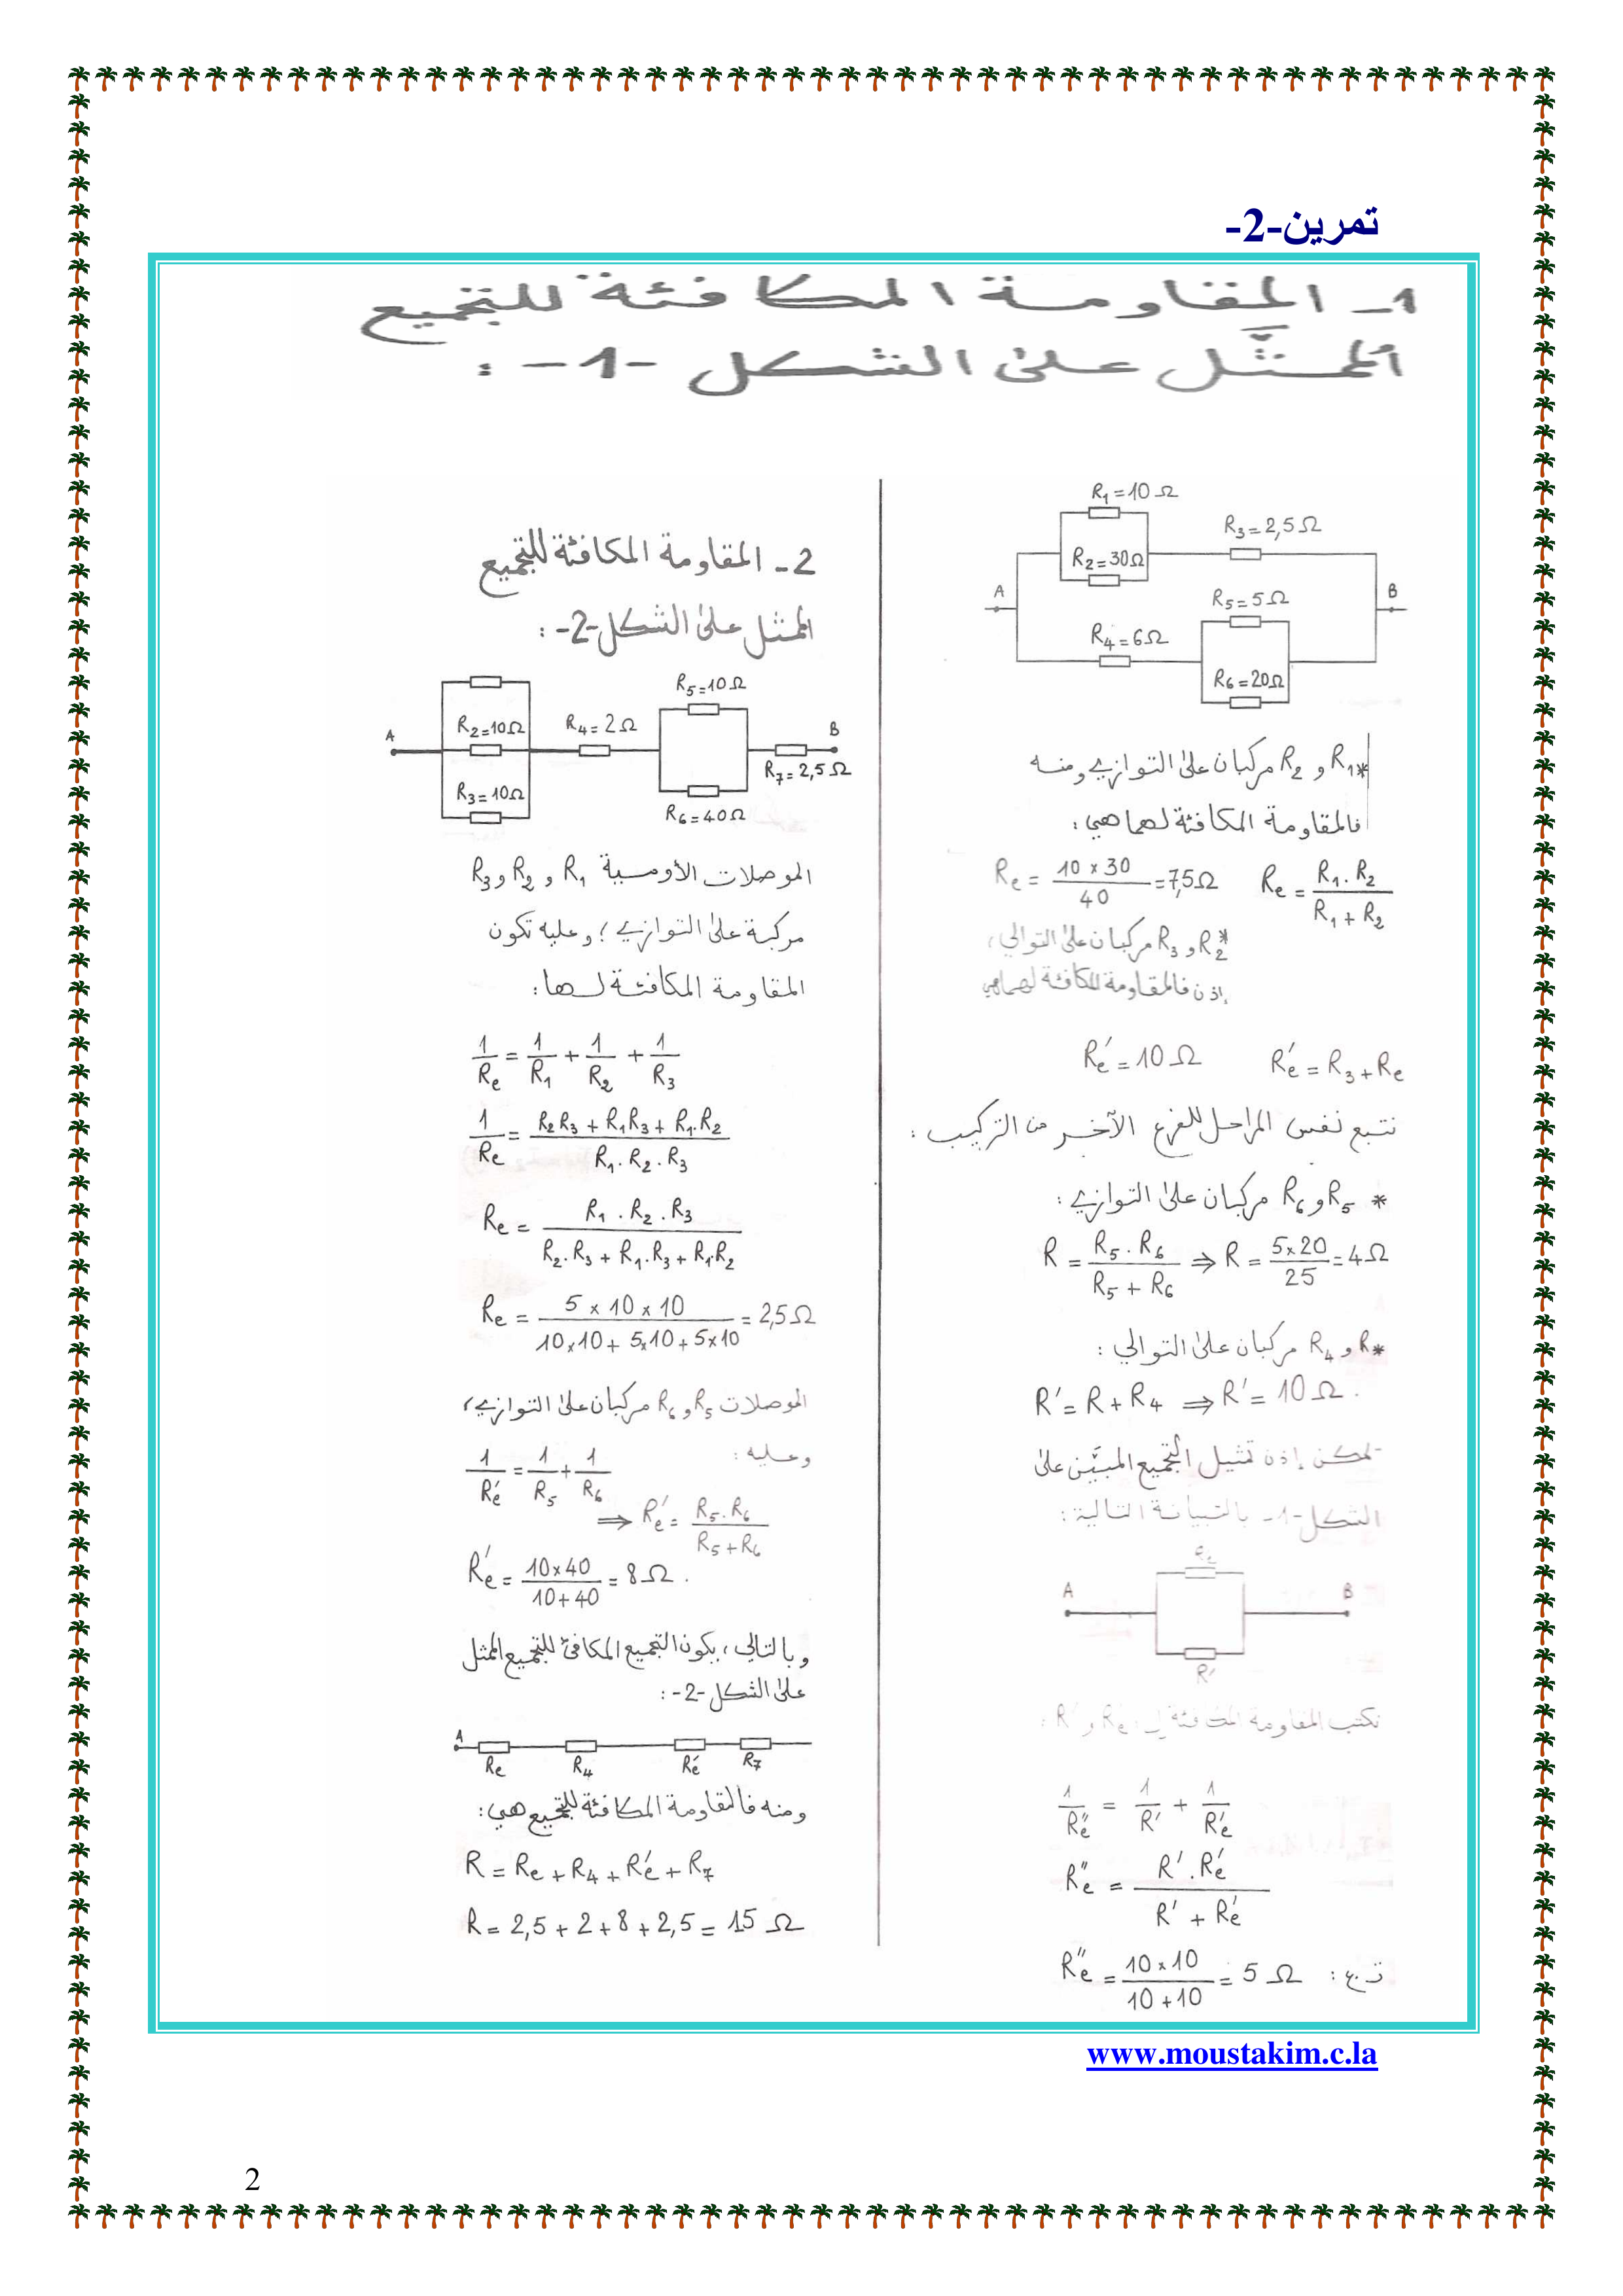 تمرين-2-
1- المقاومة المكافئة للتجميع
الممثَّل على الشكل -1- :
R₁=10Ω
R₂=30Ω
R₃=2,5Ω
A
B
R₅=5Ω
R₄=6Ω
R₆=20Ω
*R₁ و R₂ مركبان على التوازي ومنه
فالمقاومة المكافئة لهما هي :
Re = R₁.R₂ / R₁+R₂
Re = 10 x 30 / 40 = 7,5Ω
*R₂ و R₃ مركبان على التوالي ،
إذن فالمقاومة المكافئة لهما هي
R'e = R₃+Re
R'e = 10Ω
نتبع نفس المراحل للفرع الآخر من التركيب :
* R₅ و R₆ مركبان على التوازي :
R = R₅.R₆ / R₅+R₆ ⇒ R = 5x20 / 25 = 4Ω
*R و R₄ مركبان على التوالي :
R' = R+R₄ ⇒ R' = 10Ω.
يمكن إذن تمثيل التجميع المبيَّن على
الشكل-1- بالتبيانة التالية :
A
B
R'
نكتب المقاومة المكافئة لـ : R'e و R' :
1/R"e = 1/R' + 1/R'e
R"e = R'.R'e / R'+R'e
ت.ع : R"e = 10x10 / 10+10 = 5Ω
2- المقاومة المكافئة للتجميع
الممثل على الشكل-2- :
R₅=10Ω
A
R₂=10Ω
R₄=2Ω
B
R₇=2,5Ω
R₃=10Ω
R₆=40Ω
الموصلات الأومية R₁ و R₂ و R₃
مركبة على التوازي ؛ وعليه تكون
المقاومة المكافئة لها :
1/Re = 1/R₁ + 1/R₂ + 1/R₃
1/Re = R₂R₃+R₁R₃+R₁.R₂ / R₁.R₂.R₃
Re = R₁.R₂.R₃ / R₂.R₃+R₁.R₃+R₁.R₂
Re = 5x10x10 / 10x10+5x10+5x10 = 2,5Ω
الموصلات R₅ و R₆ مركبان على التوازي ،
وعليه :
1/R'e = 1/R₅ + 1/R₆
⇒ R'e = R₅.R₆ / R₅+R₆
R'e = 10x40 / 10+40 = 8Ω.
وبالتالي ، يكون التجميع المكافئ للتجميع الممثل
على الشكل-2- :
A
Re R₄ R'e R₇
ومنه فالمقاومة المكافئة للتجميع هي :
R = Re+R₄+R'e+R₇
R = 2,5+2+8+2,5 = 15Ω
www.moustakim.c.la
2